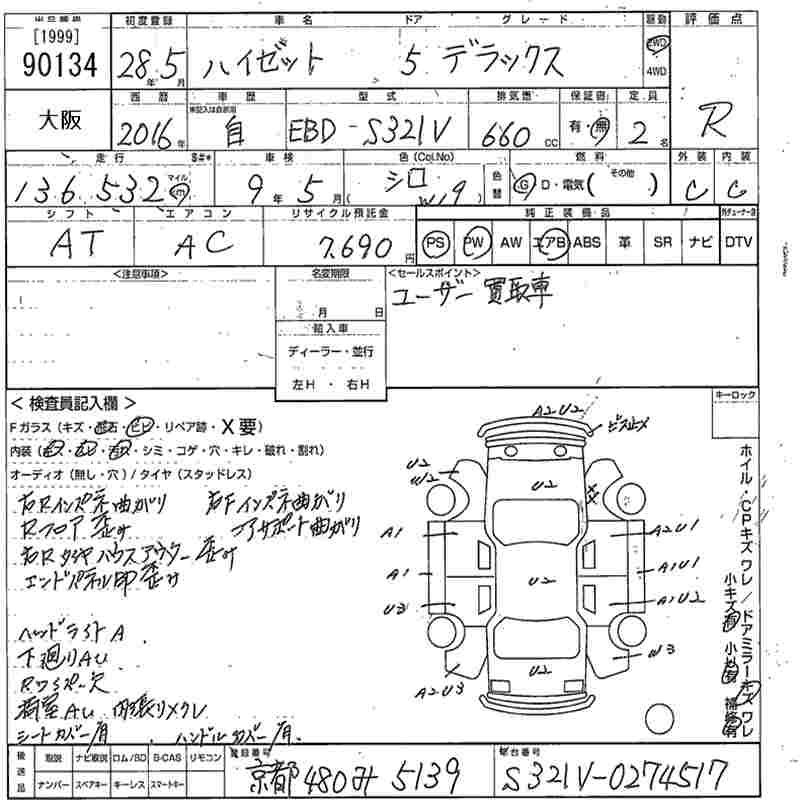 出品店番 初度登録 車名 ドア グレード 駆動 評価点
[1999]
90134 28年5月 ハイゼット 5 デラックス 2WD 4WD
大阪 西暦 車歴 型式 排気量 保証書 定員 R
2016年 自 EBD-S321V 660cc 有・無 2名
走行 車検 色(Col.No) 燃料 その他 外装 内装
136,532 マイル km 9年5月 シロ W19 色替 G D・電気( ) C C
シフト エアコン リサイクル預託金 純正装備品
AT AC 7,690円 PS PW AW エアB ABS 革 SR ナビ DTV
<注意事項> 名変期限 <セールスポイント>
月 日 ユーザー買取車
輸入車
ディーラー・並行
左H・右H
<検査員記入欄> キーロック
Fガラス(キズ・飛石・ヒビ・リペア跡・X要)
内装(・シミ・コゲ・穴・キレ・破れ・割れ)
オーディオ(無し・穴)/タイヤ(スタッドレス)
右Rインパネ曲がり 右Fインパネ曲がり
Rフロア歪み コアサポート曲がり
右Rタイヤハウスアウター歪み
エンドパネル凹歪み
ヘッドライトA
下廻りAU
Rワイパー欠
荷室AU 内張りメクレ
シートカバー有 ハンドルカバー有
A2U2 ビス止メ
U2
W2 U2 XX
A1 A2U1
A1 U2 A1U1
U3 A1U2
U2 W3
A2U3
ホイル・CPキズワレ/ドアミラーキズワレ
後送品 取説 ナビ取説 ロム/SD B-CAS リモコン 登録番号 車台番号
ナンバー スペアキー キーレス スマートキー 京都480み5139 S321V-0274517